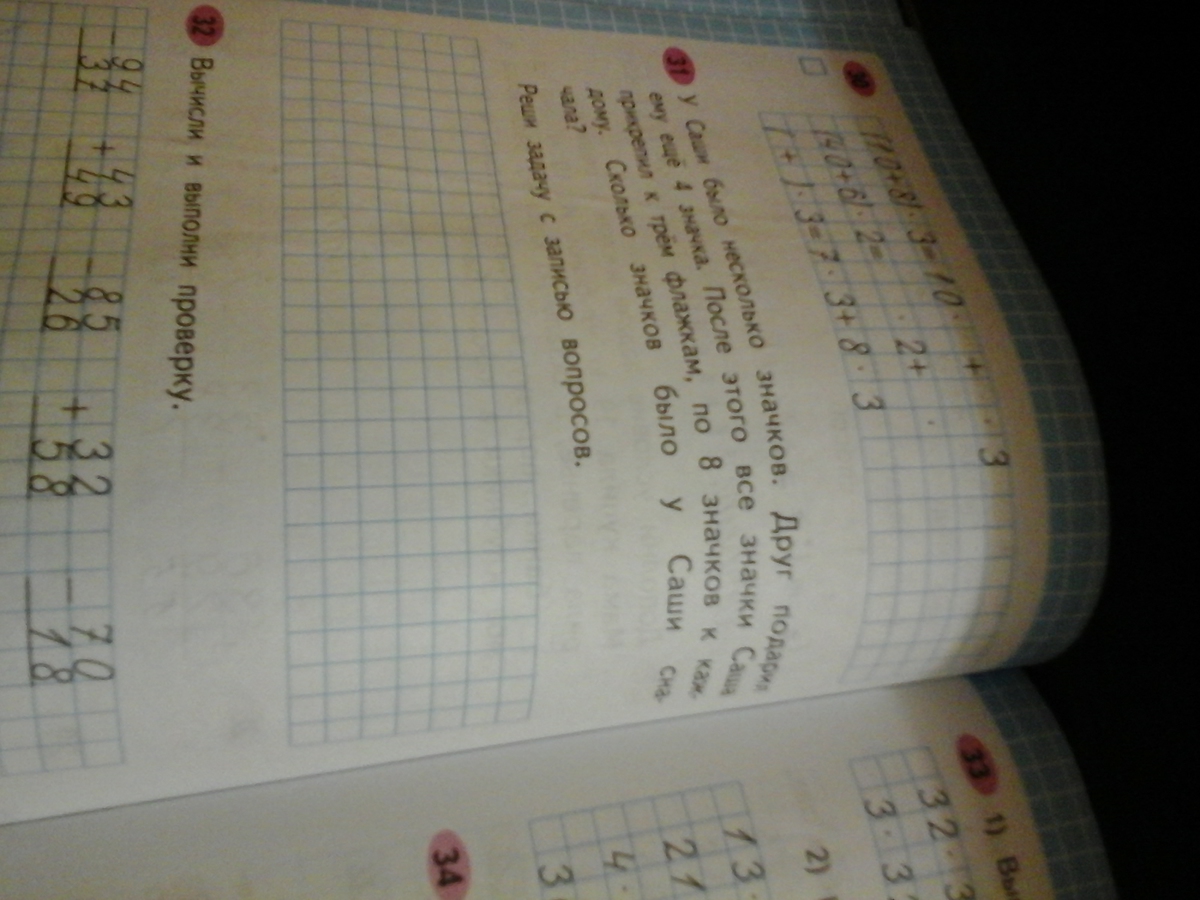 30
(10+8)·3=10· + ·3
(40+6)·2= ·2+ ·
( + )·3=7·3+8·3
31 У Саши было несколько значков. Друг подарил
ему ещё 4 значка. После этого все значки Саша
прикрепил к трём флажкам, по 8 значков к каж-
дому. Сколько значков было у Саши сна-
чала?
Реши задачу с записью вопросов.
32 Вычисли и выполни проверку.
- 94 + 43 - 85 + 32 - 70
37 49 26 58 18
33 1)
32·3
3·3
2)
13·
21
4·
3
34